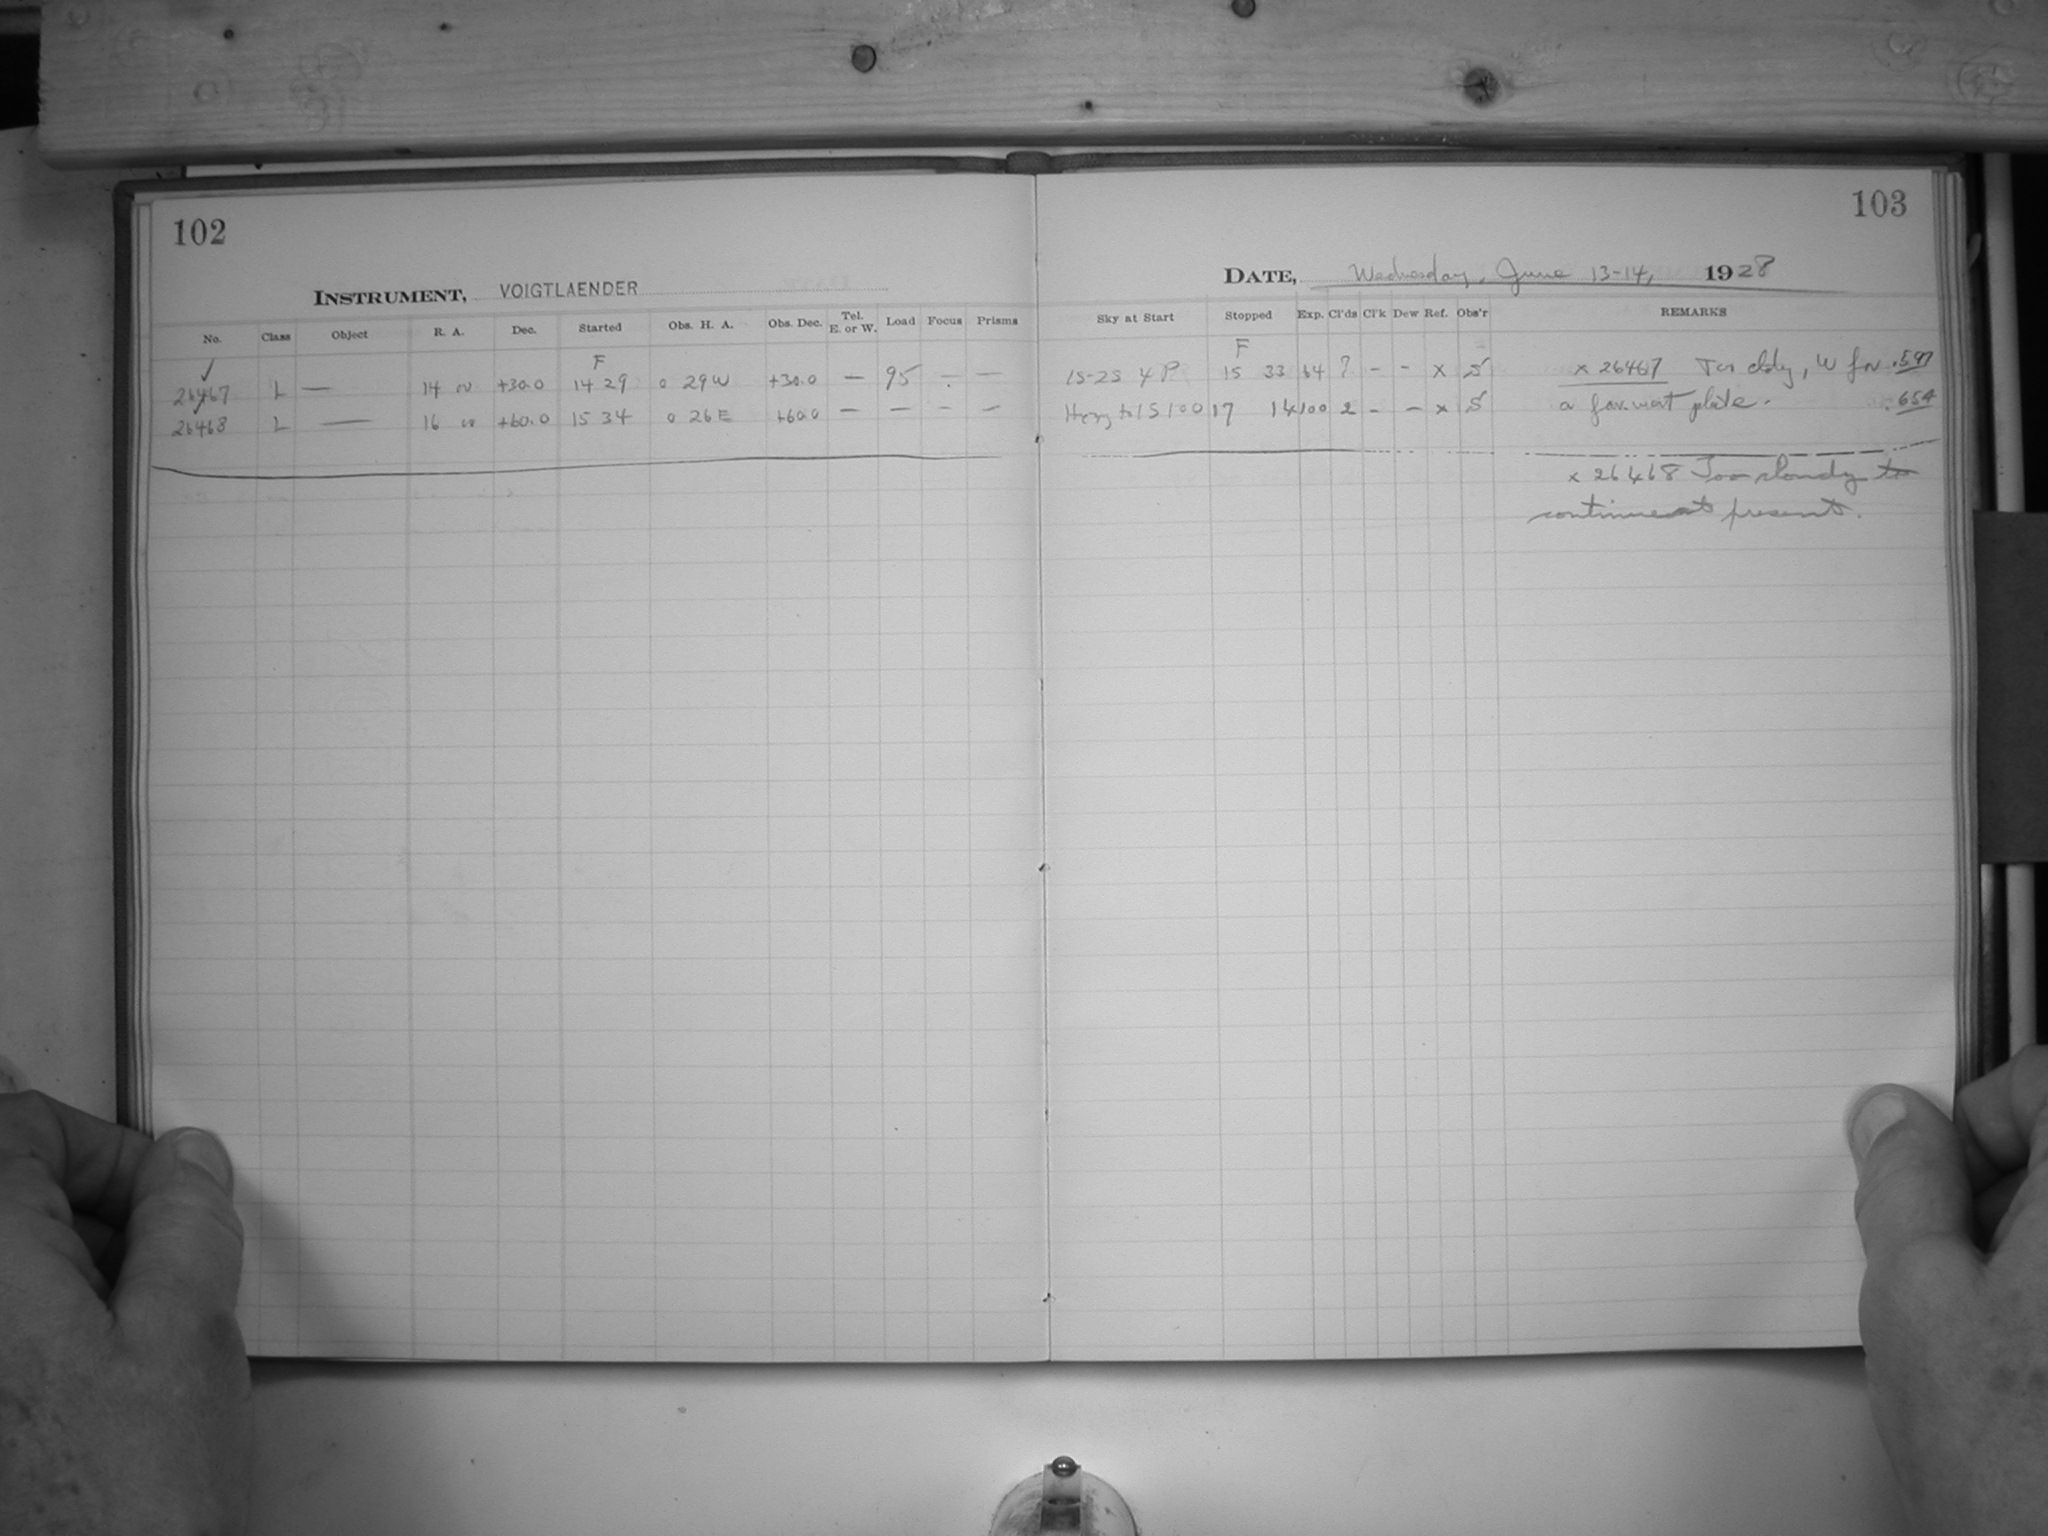 102
103
INSTRUMENT, VOIGTLAENDER
DATE, Wednesday, June 13-14, 1928
No. Class Object R. A. Dec. Started Obs. H. A. Obs. Dec. Tel. E. or W. Load Focus Prisms Sky at Start Stopped Exp. Cl'ds Cl'k Dew Ref. Obs'r REMARKS
F F
26467 L — 14 +30.0 14 29 0 29W +30.0 — 95 — — 1S-2S 4 P 15 33 64 ? - - x S x 26467 cldy, .597
26468 L — 16 +60.0 15 34 0 26E +60.0 — — - — Hazy to 1S 100 17 14 100 2 - - x S a plate. .654
x 26468 Too cloudy to
continue at present.